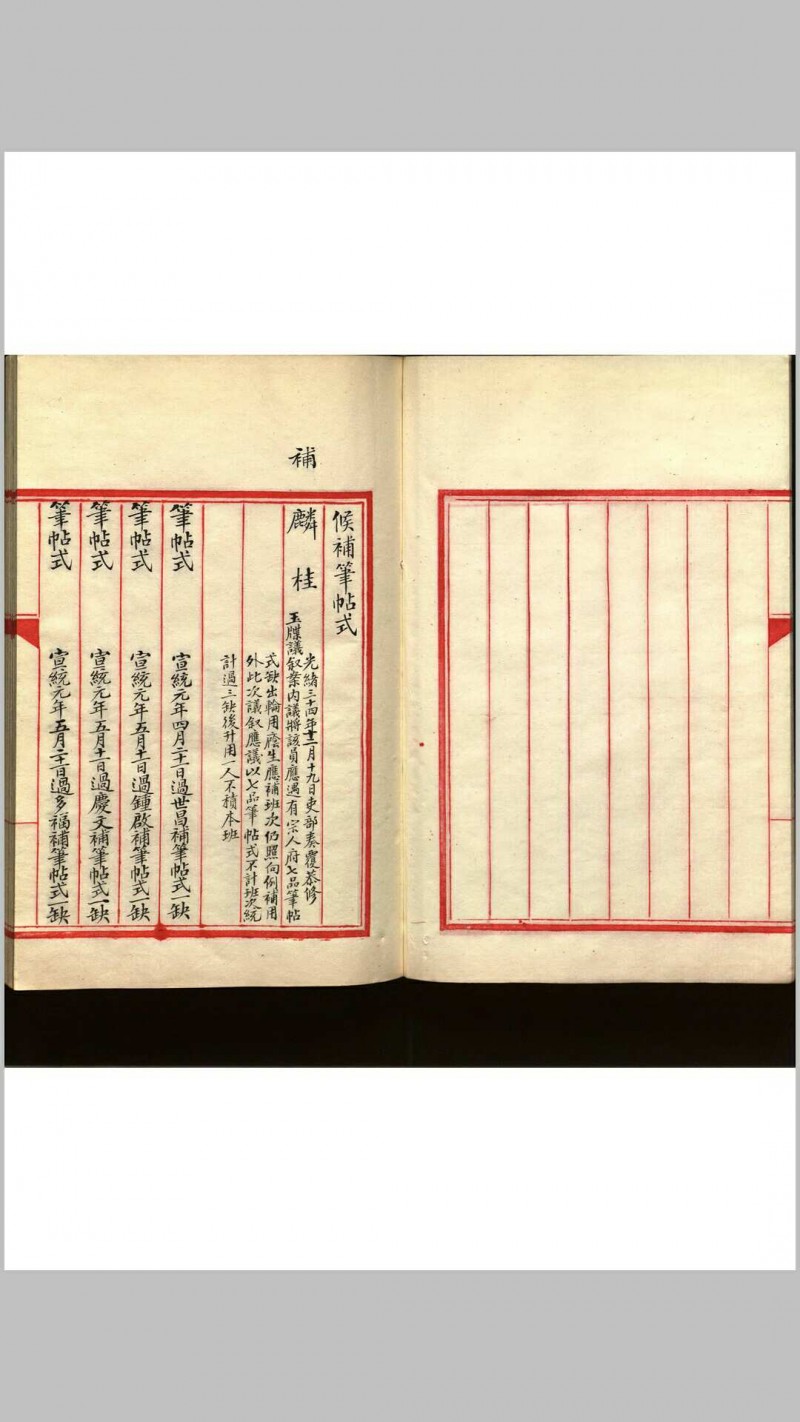 補
候補筆帖式
麟桂
光緒三十四年十二月十九日吏部奏覆恭修
玉牒議叙案內議將該員應遇有宗人府七品筆帖
式缺出輪用廕生應補班次仍照向例補用
外此次議叙應議以七品筆帖式不計班次統
計過三缺後升用一人不積本班
筆帖式 宣統元年四月二十一日過世昌補筆帖式一缺
筆帖式 宣統元年五月十一日過鍾啟補筆帖式一缺
筆帖式 宣統元年五月十一日過慶文補筆帖式一缺
筆帖式 宣統元年五月二十一日過多福補筆帖式一缺